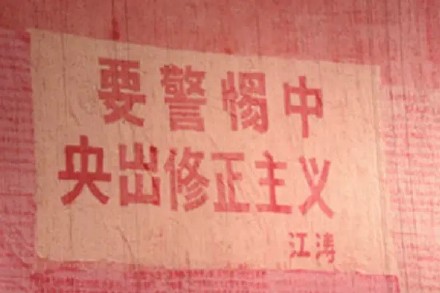 要警惕中
央出修正主义
江涛